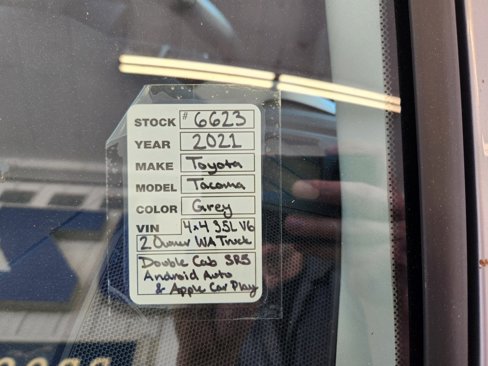 STOCK # 6623
YEAR 2021
MAKE Toyota
MODEL Tacoma
COLOR Grey
VIN 4x4 3.5L V6
2 Owner WA Truck
Double Cab SR5
Android Auto
& Apple Car Play